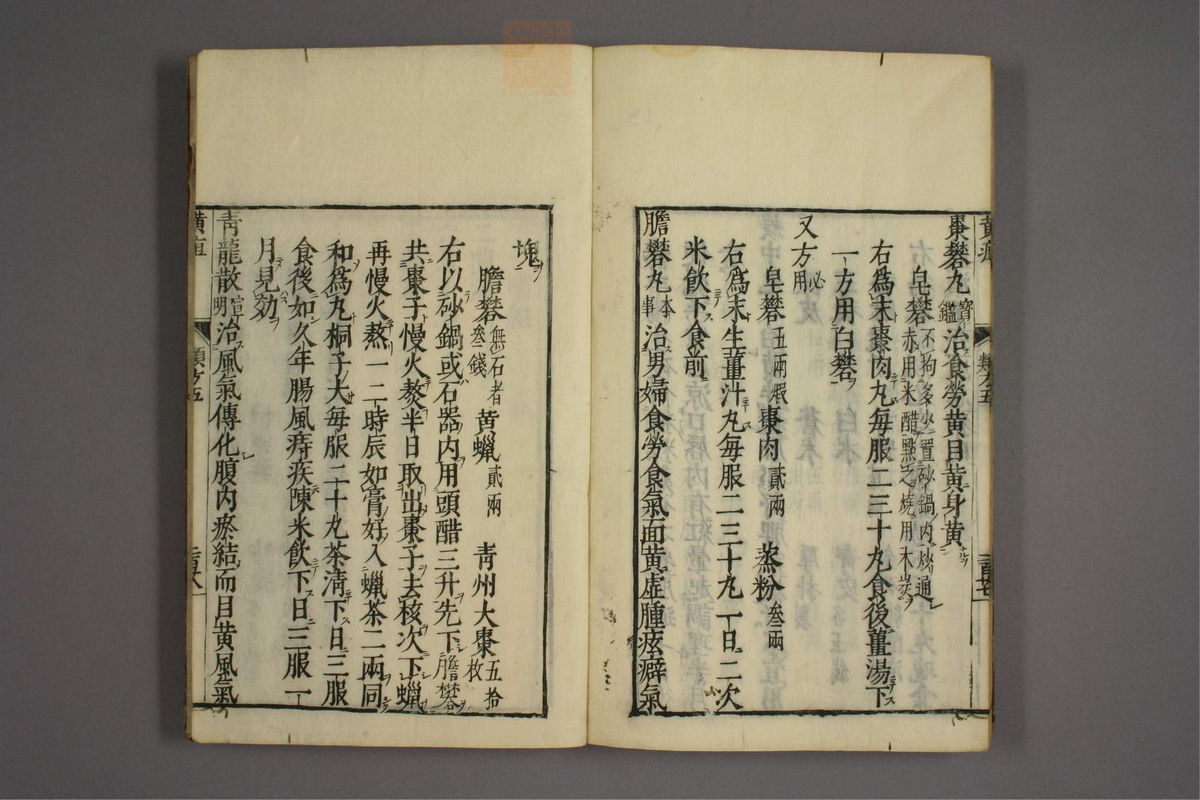 棗礬丸寶鑑治食勞黄目黄身黄
皂礬不拘多少置砂鍋内炒通赤用米醋點之燒用木炭
右爲末棗肉丸每服二三十丸食後薑湯下
一方用白礬
又方必用
皂礬五兩煆棗肉貳兩蒸粉叁兩
右爲末生薑汁丸每服二三十丸一日二次
米飲下食前
膽礬丸本事治男婦食勞食氣面黄虚腫痃癖氣
黄疸
類方五
塊
膽礬無石者叁錢黄蠟貳兩青州大棗五拾枚
右以砂鍋或石器内用頭醋三升先下膽礬
共棗子慢火熬半日取出棗子去核次下蠟
再慢火熬一二時辰如膏好入蠟茶二兩同
和爲丸桐子大每服二十丸茶清下日三服
食後如久年腸風痔疾陳米飲下日三服一
月見効
青龍散宣明治風氣傳化腹内瘀結而目黄風氣
黄疸
類方五